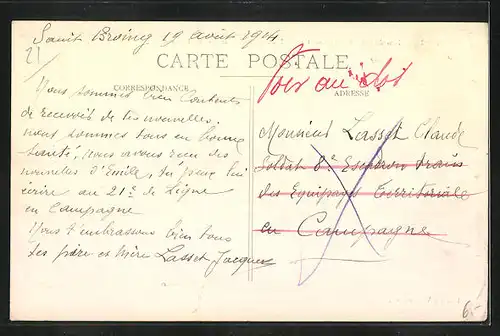 Saint Broing 19 août 1914.
21
CARTE POSTALE
CORRESPONDANCE
ADRESSE
Voir au dos
Nous sommes bien Contents
de recevoir de tes nouvelles.
nous sommes tous en bonne
santé, nous avons reçu des
nouvelles d'Emile, tu peux lui
écrire au 21e de Ligne
en Campagne
Nous t'embrassons bien tous
tes père et Mère Lasset Jacques
Monsieur Lasset Claude
Soldat 8e Escadron train
des Equipages Territoriale
en Campagne
65